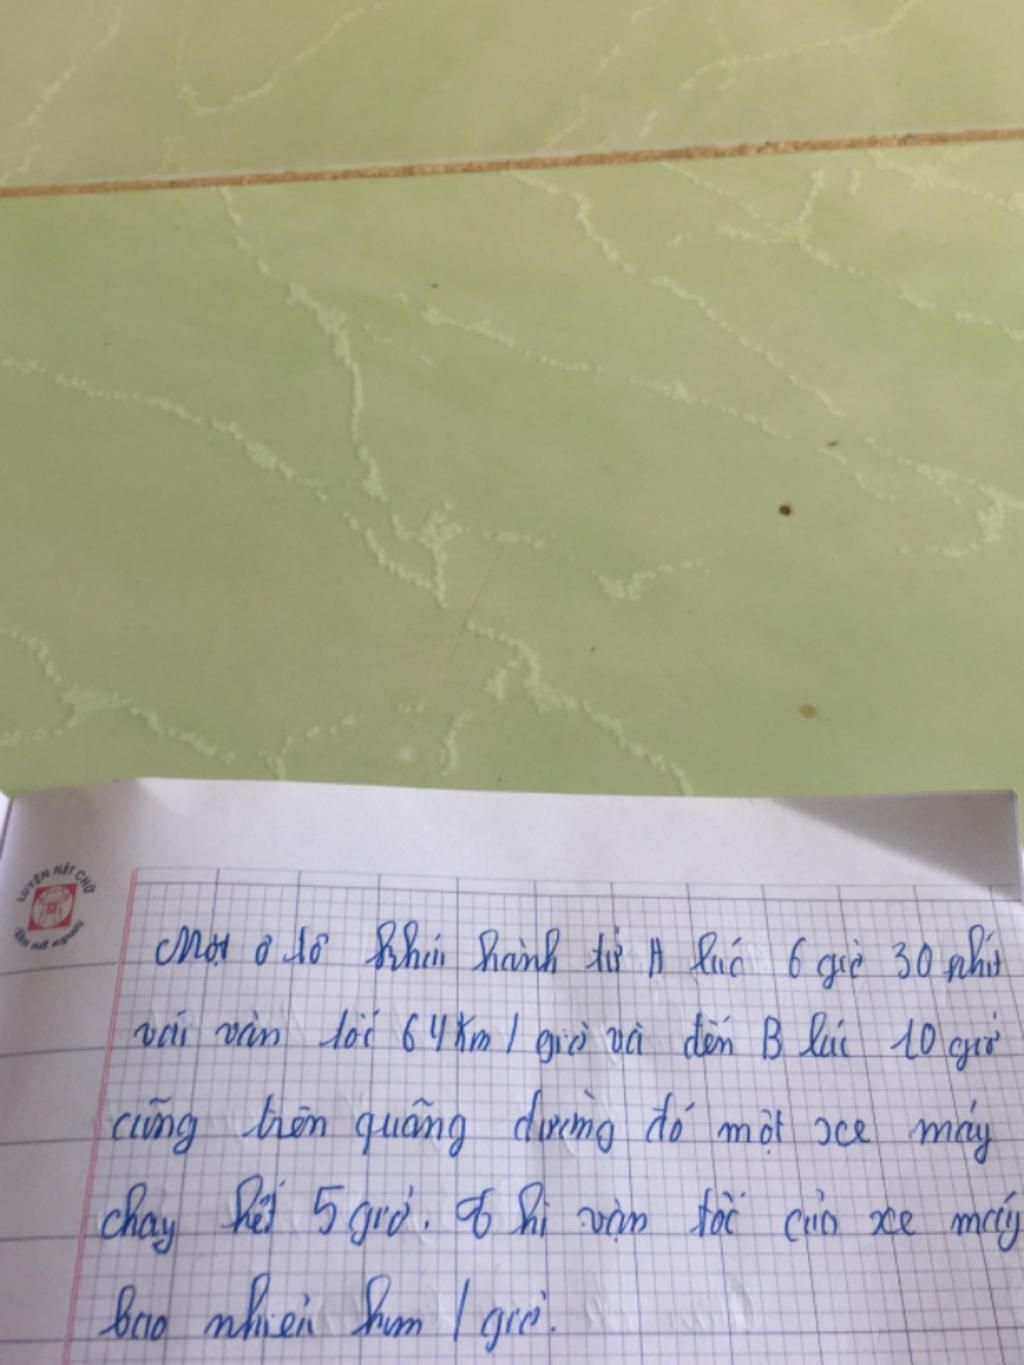 LUYỆN NÉT CHỮ
Rèn nết người
Một ô tô khởi hành từ A lúc 6 giờ 30 phút
với vận tốc 64 km / giờ và đến B lúc 10 giờ
cũng trên quãng đường đó một xe máy
chạy hết 5 giờ. hỏi vận tốc của xe máy
bao nhiên km / giờ.